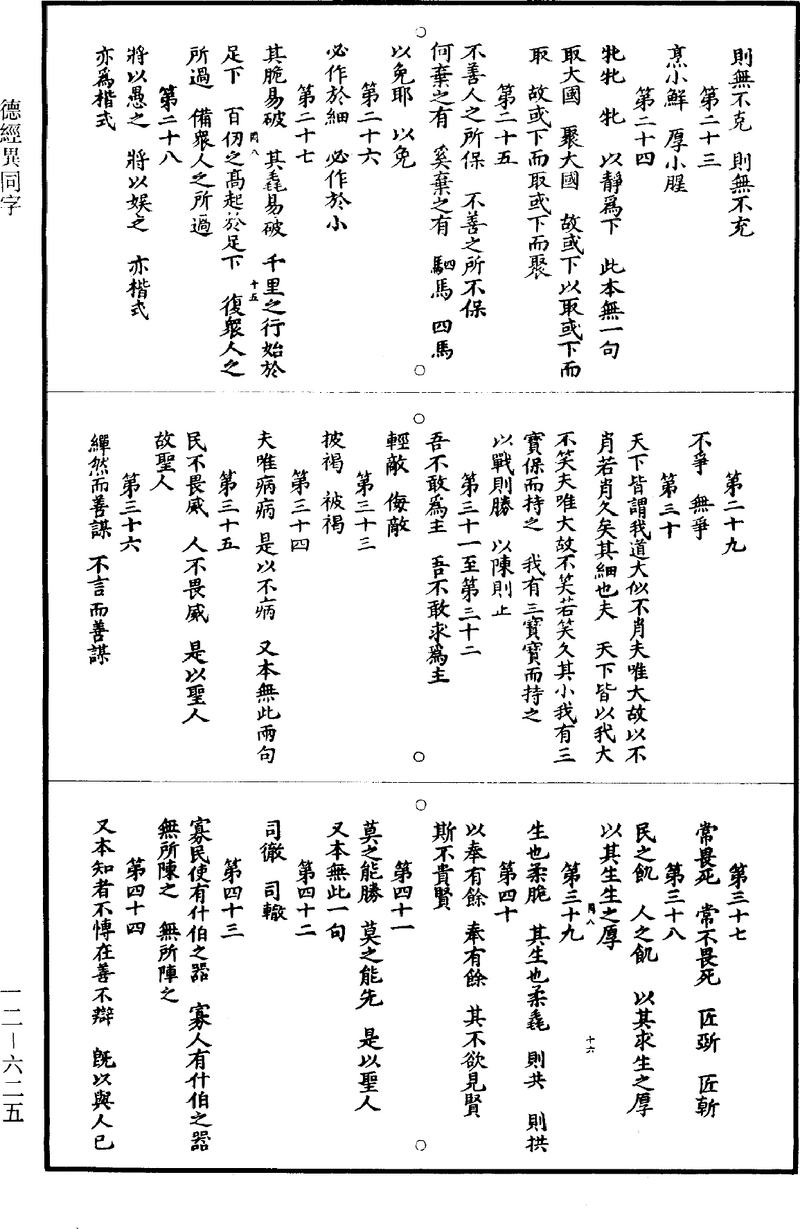 則無不克　則無不充
第二十三
烹小鮮　厚小腥
第二十四
牝牝　牝　以靜爲下　此本無一句
取大國　聚大國　故或下以取或下而
取　故或下而取或下而聚
第二十五
不善人之所保　不善之所不保
何棄之有　奚棄之有　駟馬　四馬
以免耶　以免
第二十六
必作於細　必作於小
第二十七
其脆易破　其毳易破　千里之行始於
足下　百仞之高起於足下　復衆人之
所過　備衆人之所過
第二十八
將以愚之　將以娛之　亦楷式
亦爲楷式
第二十九
不爭　無爭
第三十
天下皆謂我道大似不肖夫唯大故以不
肖若肖久矣其細也夫　天下皆以我大
不笑夫唯大故不笑若笑久其小我有三
寶保而持之　我有三寶寶而持之
以戰則勝　以陳則止
第三十一至第三十二
吾不敢爲主　吾不敢求爲主
輕敵　侮敵
第三十三
披褐　被褐
第三十四
夫唯病病　是以不病　又本無此兩句
第三十五
民不畏威　人不畏威　是以聖人
故聖人
第三十六
繟然而善謀　不言而善謀
第三十七
常畏死　常不畏死　匠斲　匠斬
第三十八
民之飢　人之飢　以其求生之厚
以其生生之厚
第三十九
生也柔脆　其生也柔毳　則共　則拱
第四十
以奉有餘　奉有餘　其不欲見賢
斯不貴賢
第四十一
莫之能勝　莫之能先　是以聖人
又本無此一句
第四十二
司徹　司轍
第四十三
寡民使有什伯之器　寡人有什伯之器
無所陳之　無所陣之
第四十四
又本知者不愽在善不辯　旣以與人已
德經異同字
一二－六二五
四八
十五
四八
十六